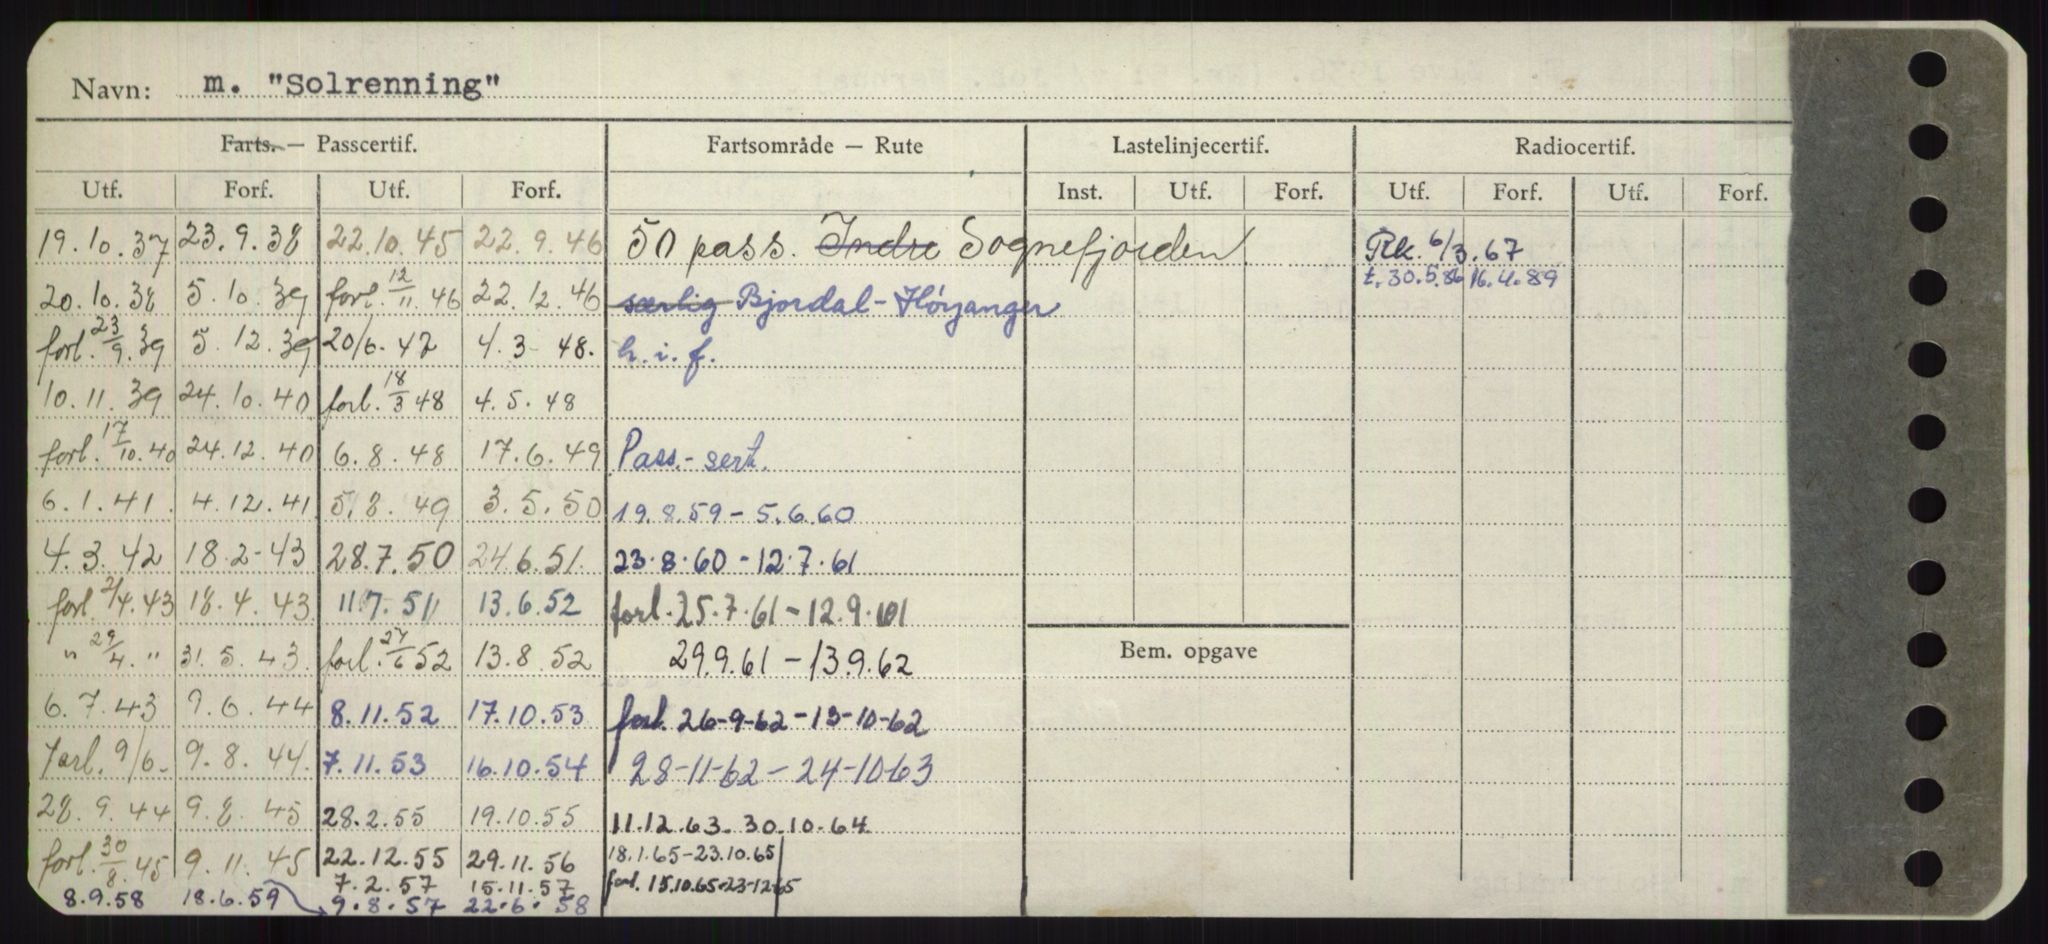 Navn: m. "Solrenning"
Farts. — Passcertif. Fartsområde — Rute Lastelinjecertif. Radiocertif.
Utf. Forf. Utf. Forf. Inst. Utf. Forf. Utf. Forf. Utf. Forf.
19.10.37 23.9.38 22.10.45 22.9.46 50 pass. Indre Sognefjorden Rk. 6/3.67
t. 30.5.86 16.4.89
20.10.38 5.10.39 forl. 12/11.46 22.12.46 særlig Bjordal-Høyanger
forl. 23/9.39 5.12.39 20/6.47 4.3-48. h.i.f.
10.11.39 24.10.40 forl. 18/3 48 4.5.48
forl. 17/10.40 24.12.40 6.8.48 17.6.49 Pass.-sert.
6.1.41. 4.12.41 5.8.49 3.5.50 19.8.59-5.6.60
4.3.42 18.2-43 28.7.50 24.6.51. 23.8.60-12.7.61
forl. 2/4.43 18.4.43 11.7.51 13.6.52 forl. 25.7.61-12.9.61
" 29/4. " 31.5.43. forl. 27/6 52 13.8.52 29.9.61-13.9.62
6.7.43 9.6.44 8.11.52 17.10.53 forl. 26-9-62-13-10-62
forl. 9/6- 9.8.44. 7.11.53 16.10.54 28-11-62-24-10-63
28.9.44 9.8.45 28.2.55 19.10.55 11.12.63. 30.10.64
forl. 30/8.45 9.11.45 22.12.55 29.11.56 18.1.65-23.10.65
7.2.57 15.11.57 forl. 15.10.65-23-12-65
8.9.58 18.6.59 9.8.57 22.6.58
Bem. opgave